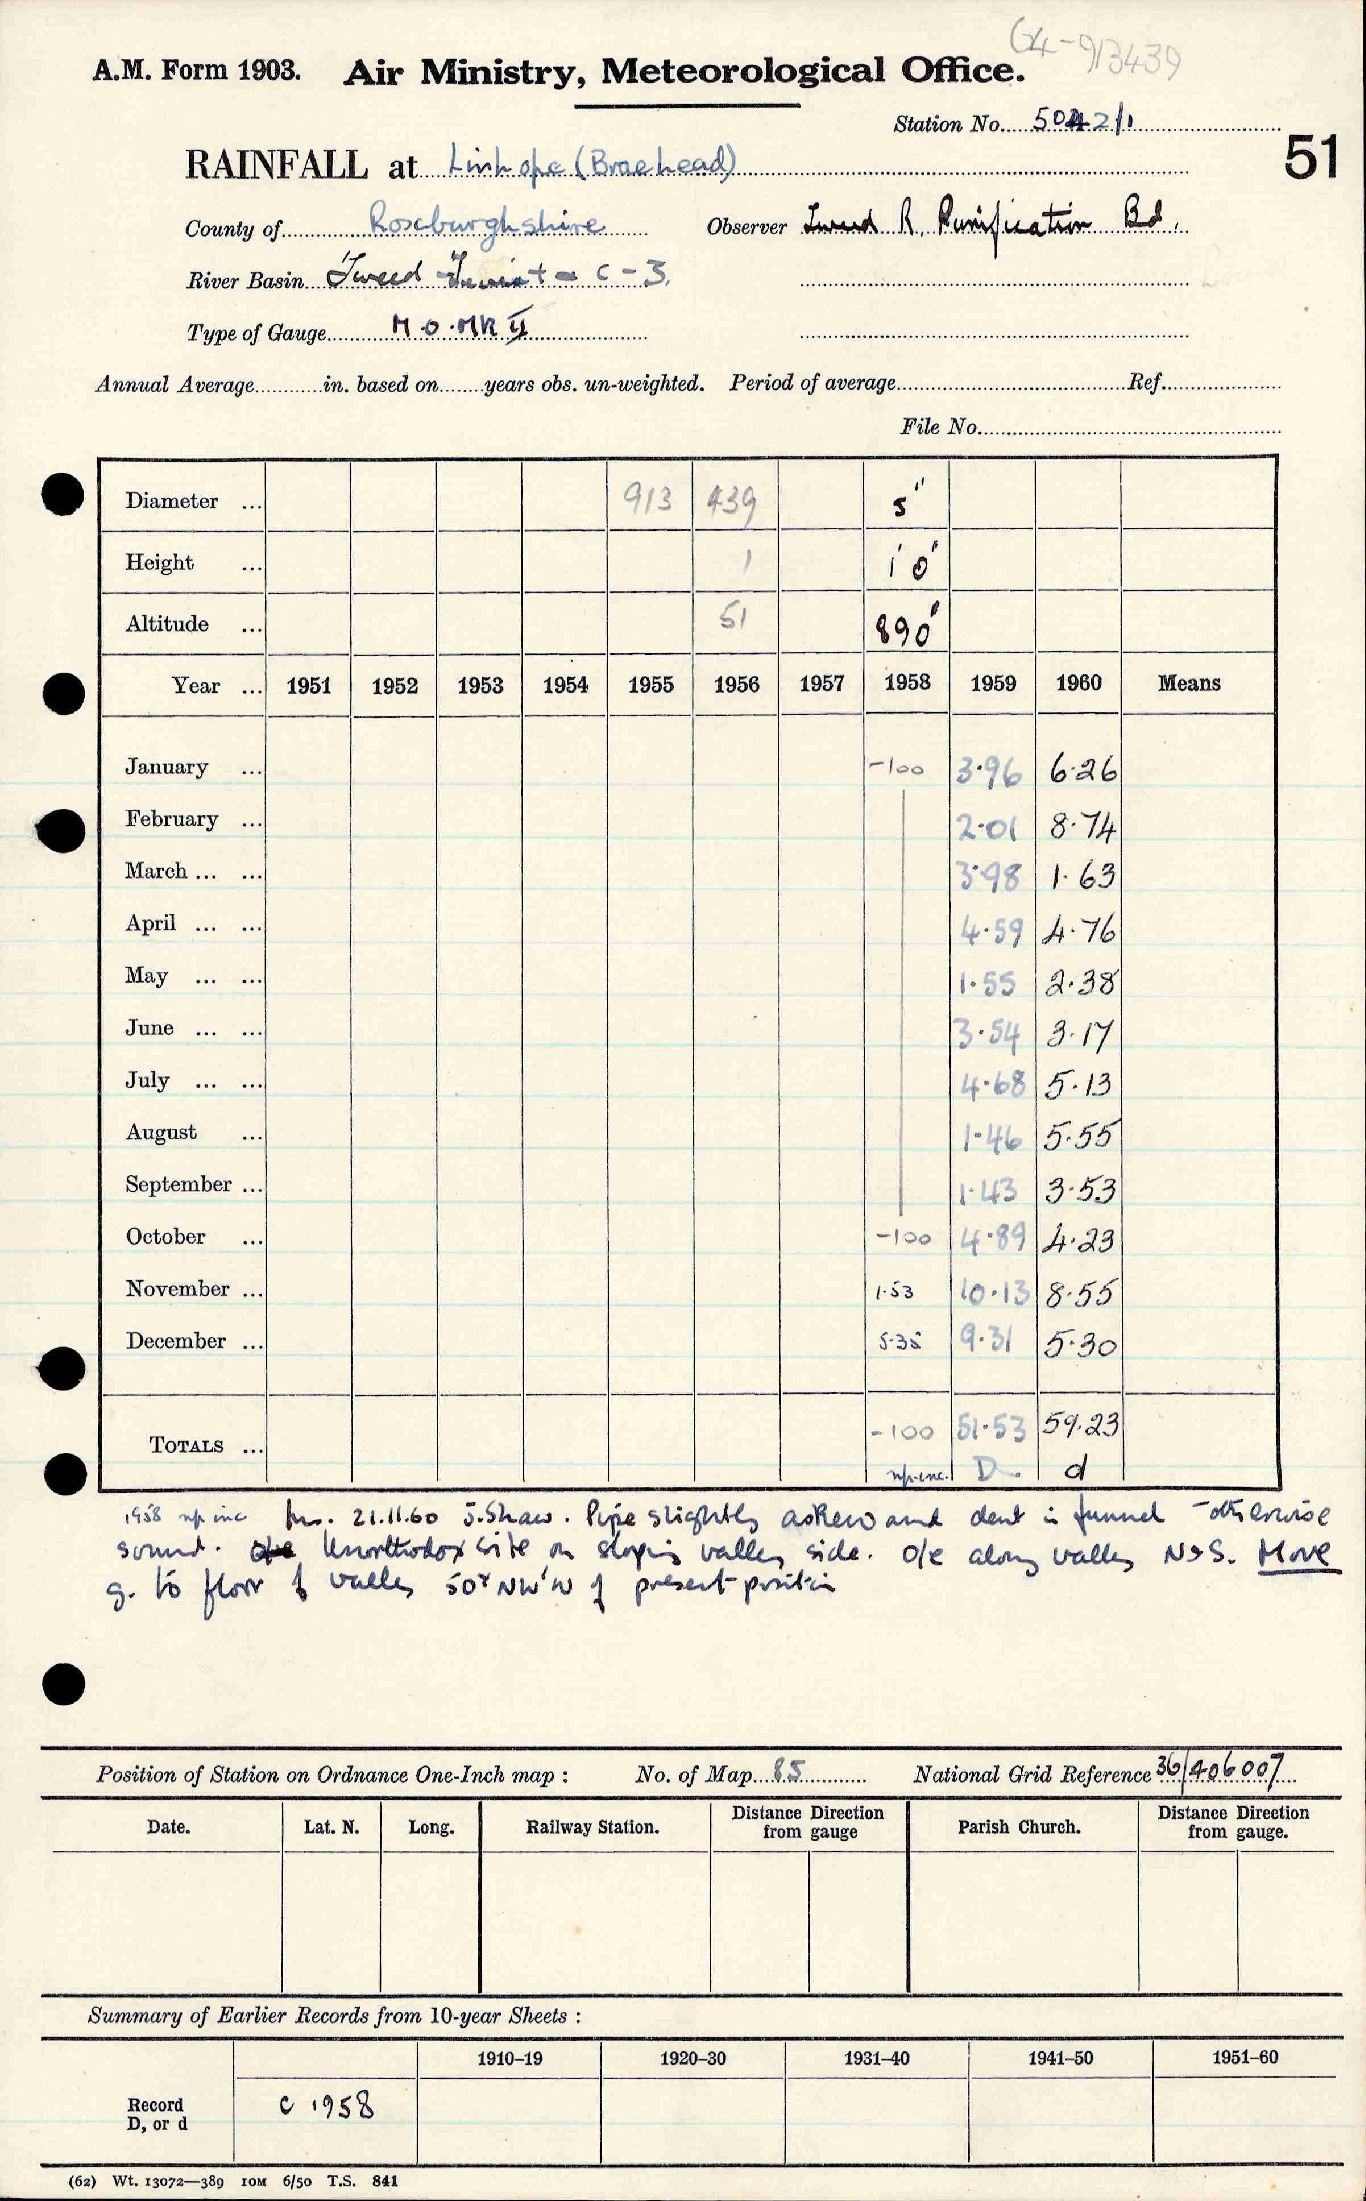 64-913439
A.M. Form 1903. Air Ministry, Meteorological Office.
Station No. 5042/1
51
RAINFALL at Linhope (Braehead)
County of Roxburghshire Observer Tweed R. Purification Bd.
River Basin Tweed - Teviot - C - 3.
Type of Gauge M.O. MK II
Annual Average in. based on years obs. un-weighted. Period of average Ref.
File No.
Diameter ... 913 439 5"
Height ... 1 1' 0"
Altitude ... 51 890'
Year ... 1951 1952 1953 1954 1955 1956 1957 1958 1959 1960 Means
January ... -100 3.96 6.26
February ... 2.01 8.74
March ... ... 3.98 1.63
April ... ... 4.59 4.76
May ... ... 1.55 2.38
June ... ... 3.54 3.17
July ... ... 4.68 5.13
August ... 1.46 5.55
September ... 1.43 3.53
October ... -100 4.89 4.23
November ... 1.53 10.13 8.55
December ... 5.35 9.31 5.30
TOTALS ... -100 51.53 59.23
np. inc. D d
1958 np inc Ins. 21.11.60 J. Shaw. Pipe slightly askew and dent in funnel - otherwise
sound. Unorthodox site on sloping valley side. o/e along valley N & S. Move
g. to floor of valley 50x NW'W of present position
Position of Station on Ordnance One-Inch map : No. of Map 85 National Grid Reference 36/406007
Date. Lat. N. Long. Railway Station. Distance Direction from gauge Parish Church. Distance Direction from gauge.
Summary of Earlier Records from 10-year Sheets :
1910–19 1920–30 1931–40 1941–50 1951–60
Record
D, or d
C 1958
(62) Wt. 13072—389 10M 6/50 T.S. 841